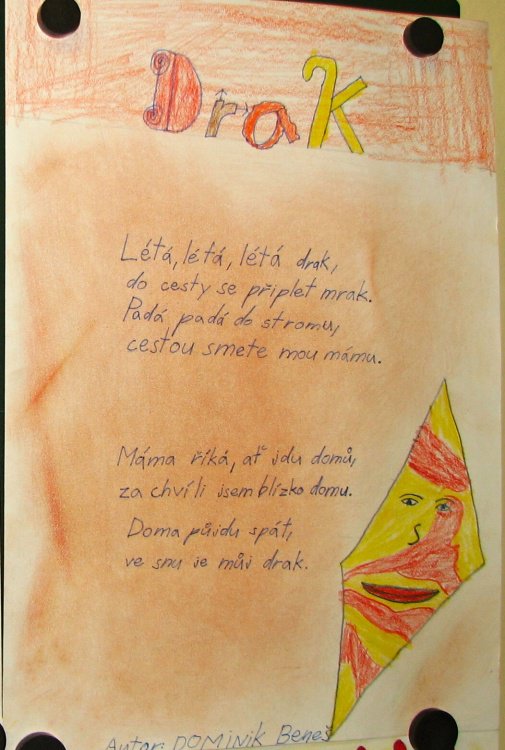 Drak
Létá, létá, létá drak,
do cesty se připlet mrak.
Padá, padá do stromu,
cestou smete mou mámu.
Máma říká, ať jdu domů,
za chvíli jsem blízko domu.
Doma půjdu spát,
ve snu je můj drak.
Autor: DOMINIK Beneš